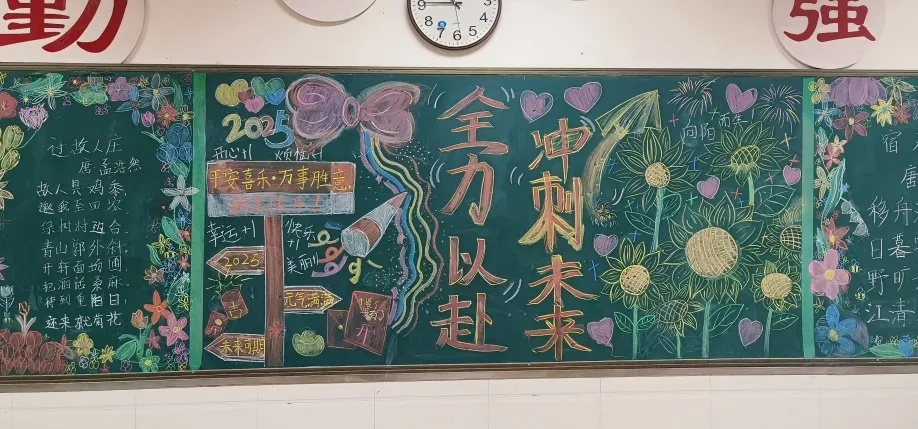 勤
強
过故人庄
唐 孟浩然
故人具鸡黍,
邀我至田家。
绿树村边合,
青山郭外斜。
开轩面场圃,
把酒话桑麻。
待到重阳日,
还来就菊花
2025
开心+1
烦恼-1
平安喜乐·万事胜意
幸运+1
快乐
+1
美丽+1
2025
元气满满
吉
未来可期
全力以赴
冲刺未来
向阳而生
宿
唐
移舟
日暮
野旷
江清